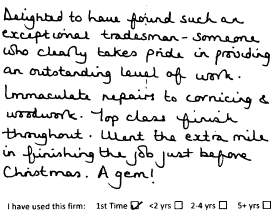 Delighted to have found such an
exceptional tradesman - someone
who clearly takes pride in providing
an outstanding level of work.
Immaculate repairs to cornicing &
woodwork. Top class finish
throughout. Went the extra mile
in finishing the job just before
Christmas. A gem!
I have used this firm: 1st Time ☑ <2 yrs ☐ 2-4 yrs ☐ 5+ yrs ☐